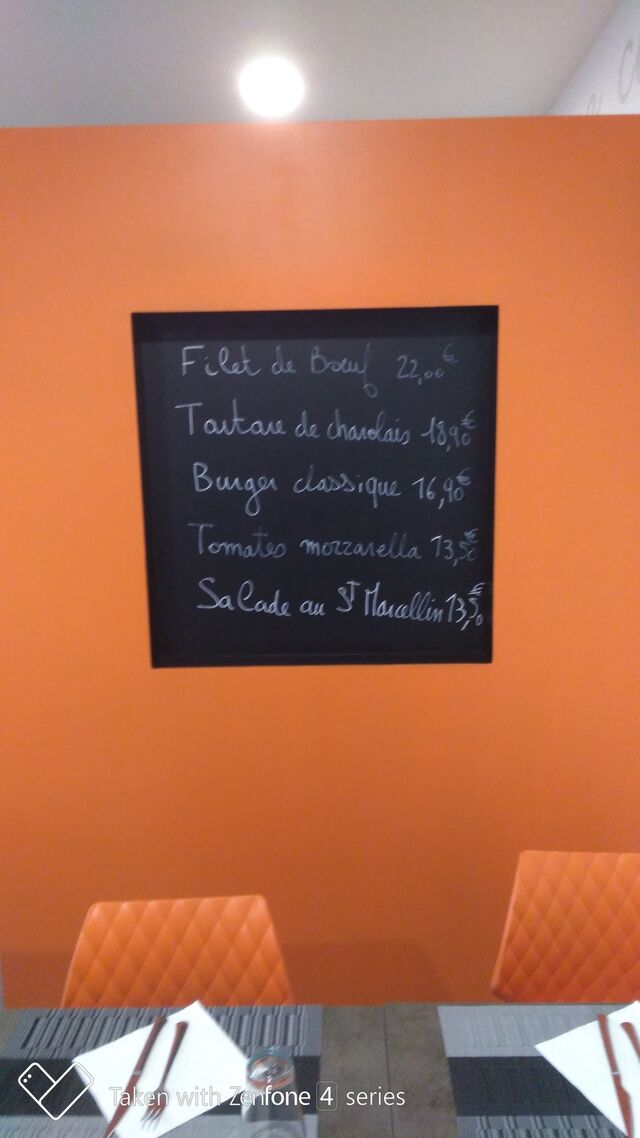 Filet de Bœuf 22,00€
Tartare de charolais 18,90€
Burger classique 16,90€
Tomates mozzarella 13,50€
Salade au St Marcellin 13,50€
Taken with Zenfone 4 series